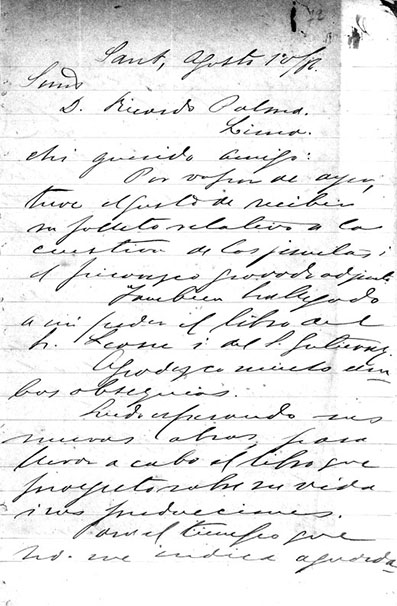 Sant, Agosto 10/
Señor
D. Ricardo Palma.
Lima.
Mi querido amigo:
Por vapor de ayer,
tuve el gusto de recibir
su folleto relativo a la
cuestion de los jesuitas i
el grabado adjunto.
Tambien ha llegado
a mi poder el libro del
S. i del S. Gutierrez.
Agradezco mucho am-
bos obsequios.
Quedo esperando sus
nuevas obras, para
llevar a cabo el libro que
proyecto sobre su vida
i sus producciones.
Para el tiempo que
Ud. me indica aguarda-